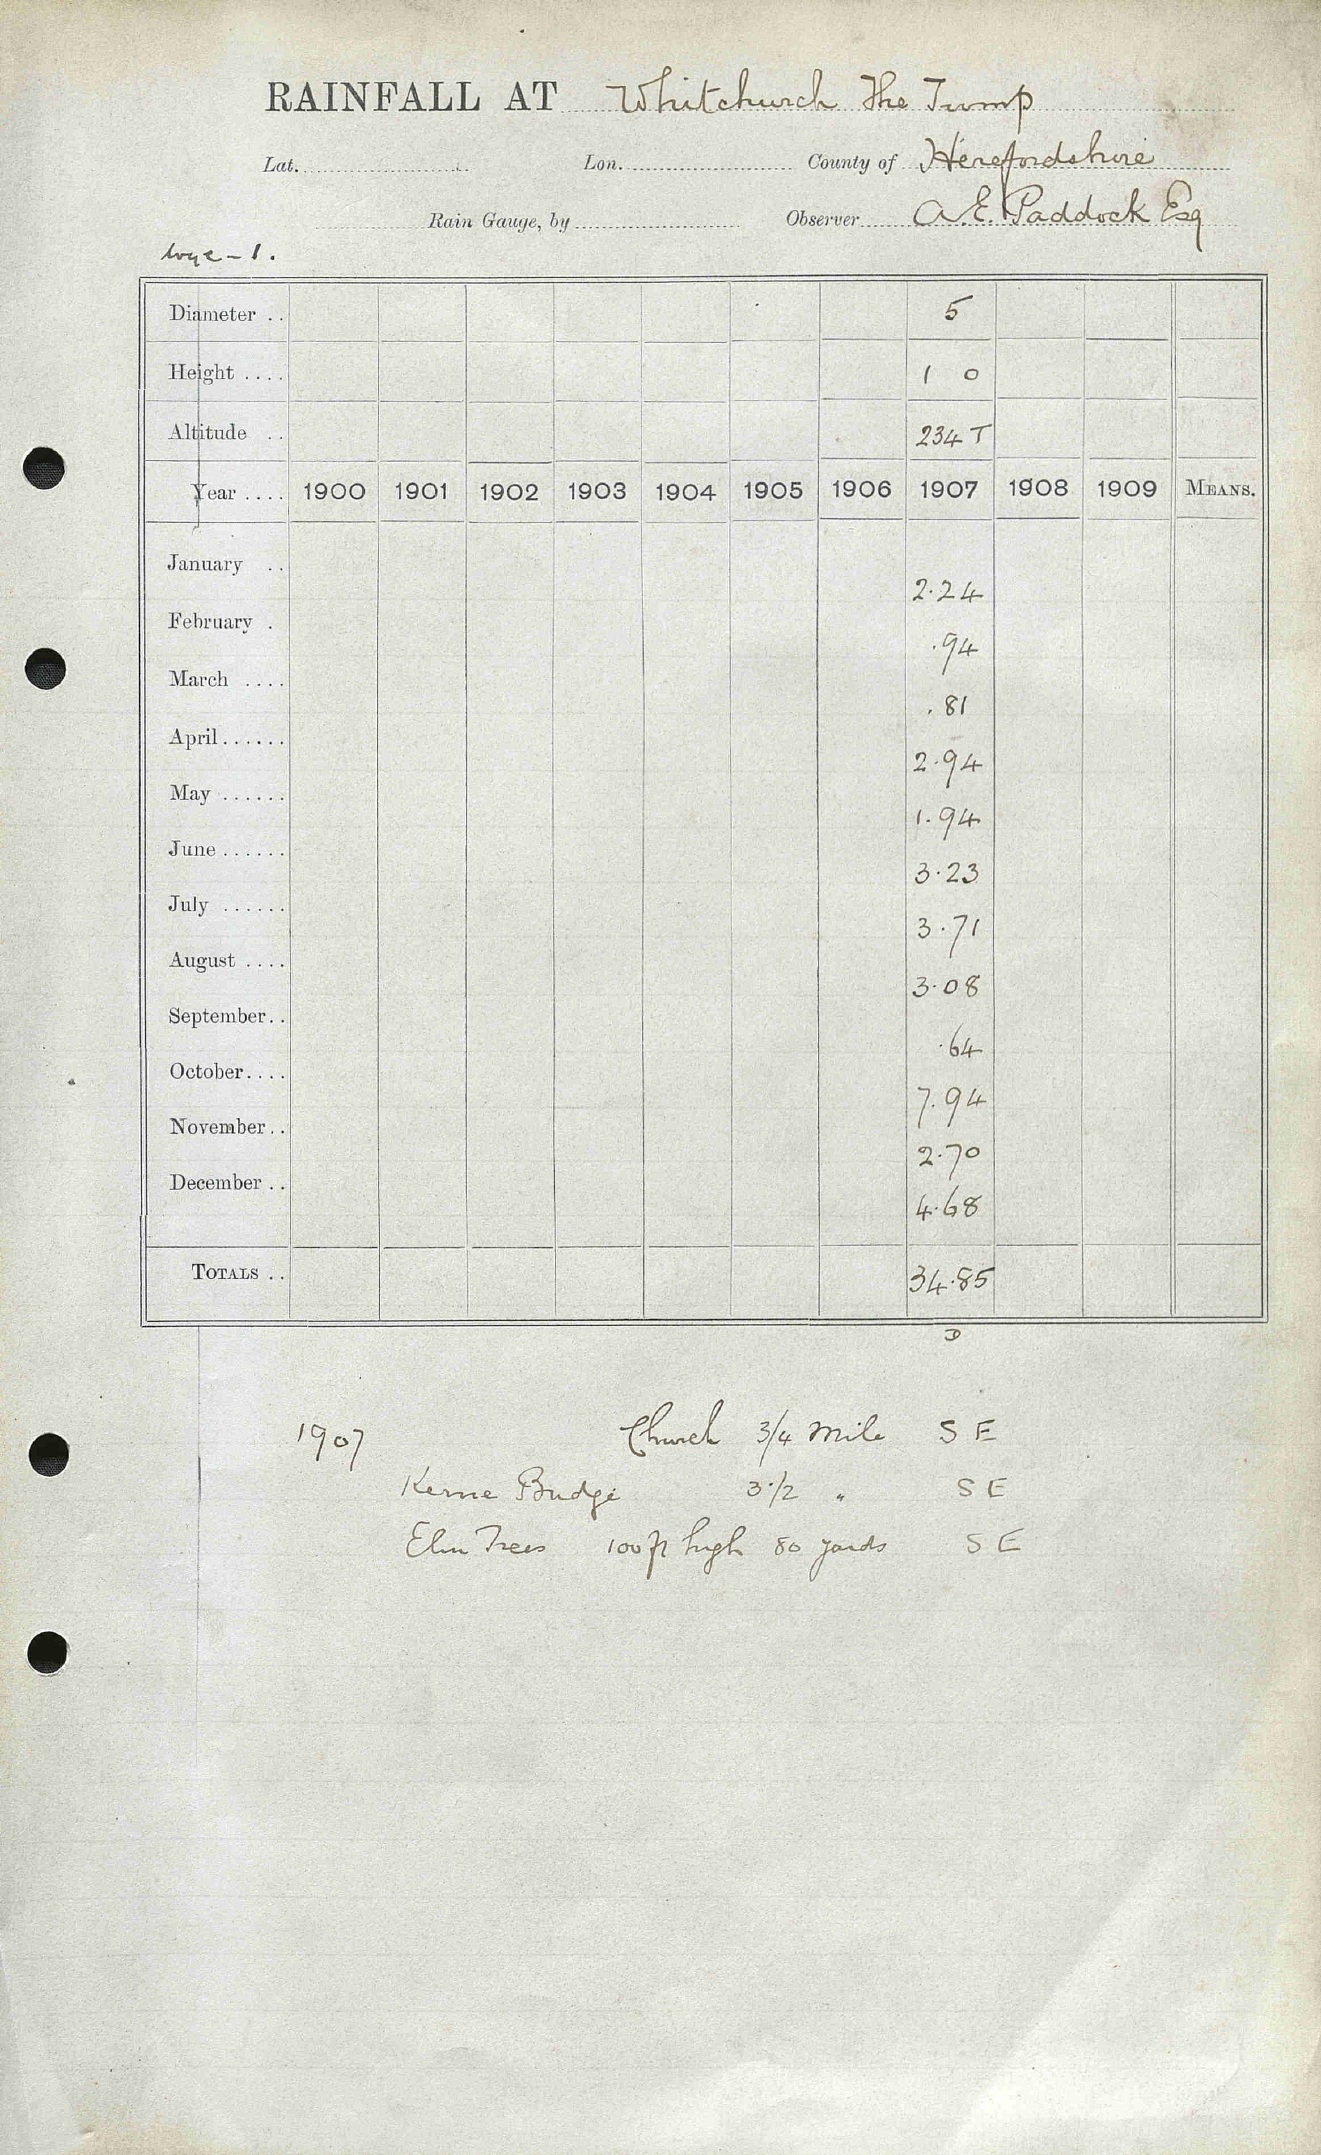 RAINFALL AT Whitchurch The Tump
Lat. Lon. County of Herefordshire
Rain Gauge, by Observer A.E. Paddock Esq
Wye - 1.
Diameter .. 5
Height .... 1 0
Altitude .. 234 T
Year .... 1900 1901 1902 1903 1904 1905 1906 1907 1908 1909 MEANS.
January .. 2.24
February . .94
March .... .81
April...... 2.94
May ...... 1.94
June ...... 3.23
July ...... 3.71
August .... 3.08
September.. .64
October.... 7.94
November.. 2.70
December .. 4.68
TOTALS .. 34.85
D
1907 Church 3/4 Mile S E
Kerne Bridge 3 1/2 " S E
Elm Trees 100 ft high 80 yards S E